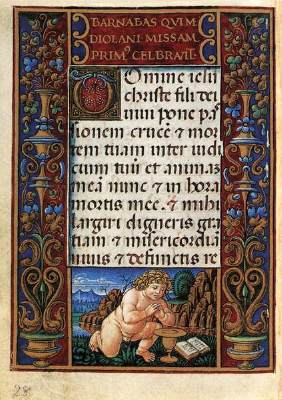 BARNABAS QVIM
DIOLANI MISSAM
PRIMO CELBRAVIT
Domine iesu
christe fili dei
uiui pone pas
sionem crucē & mor
tem tuam inter iudi
cium tuū et animaz
meā nunc & in hora
mortis mee. & mihi
largiri digneris gra
tiam & misericordiā
uiuis & defunctis re
28